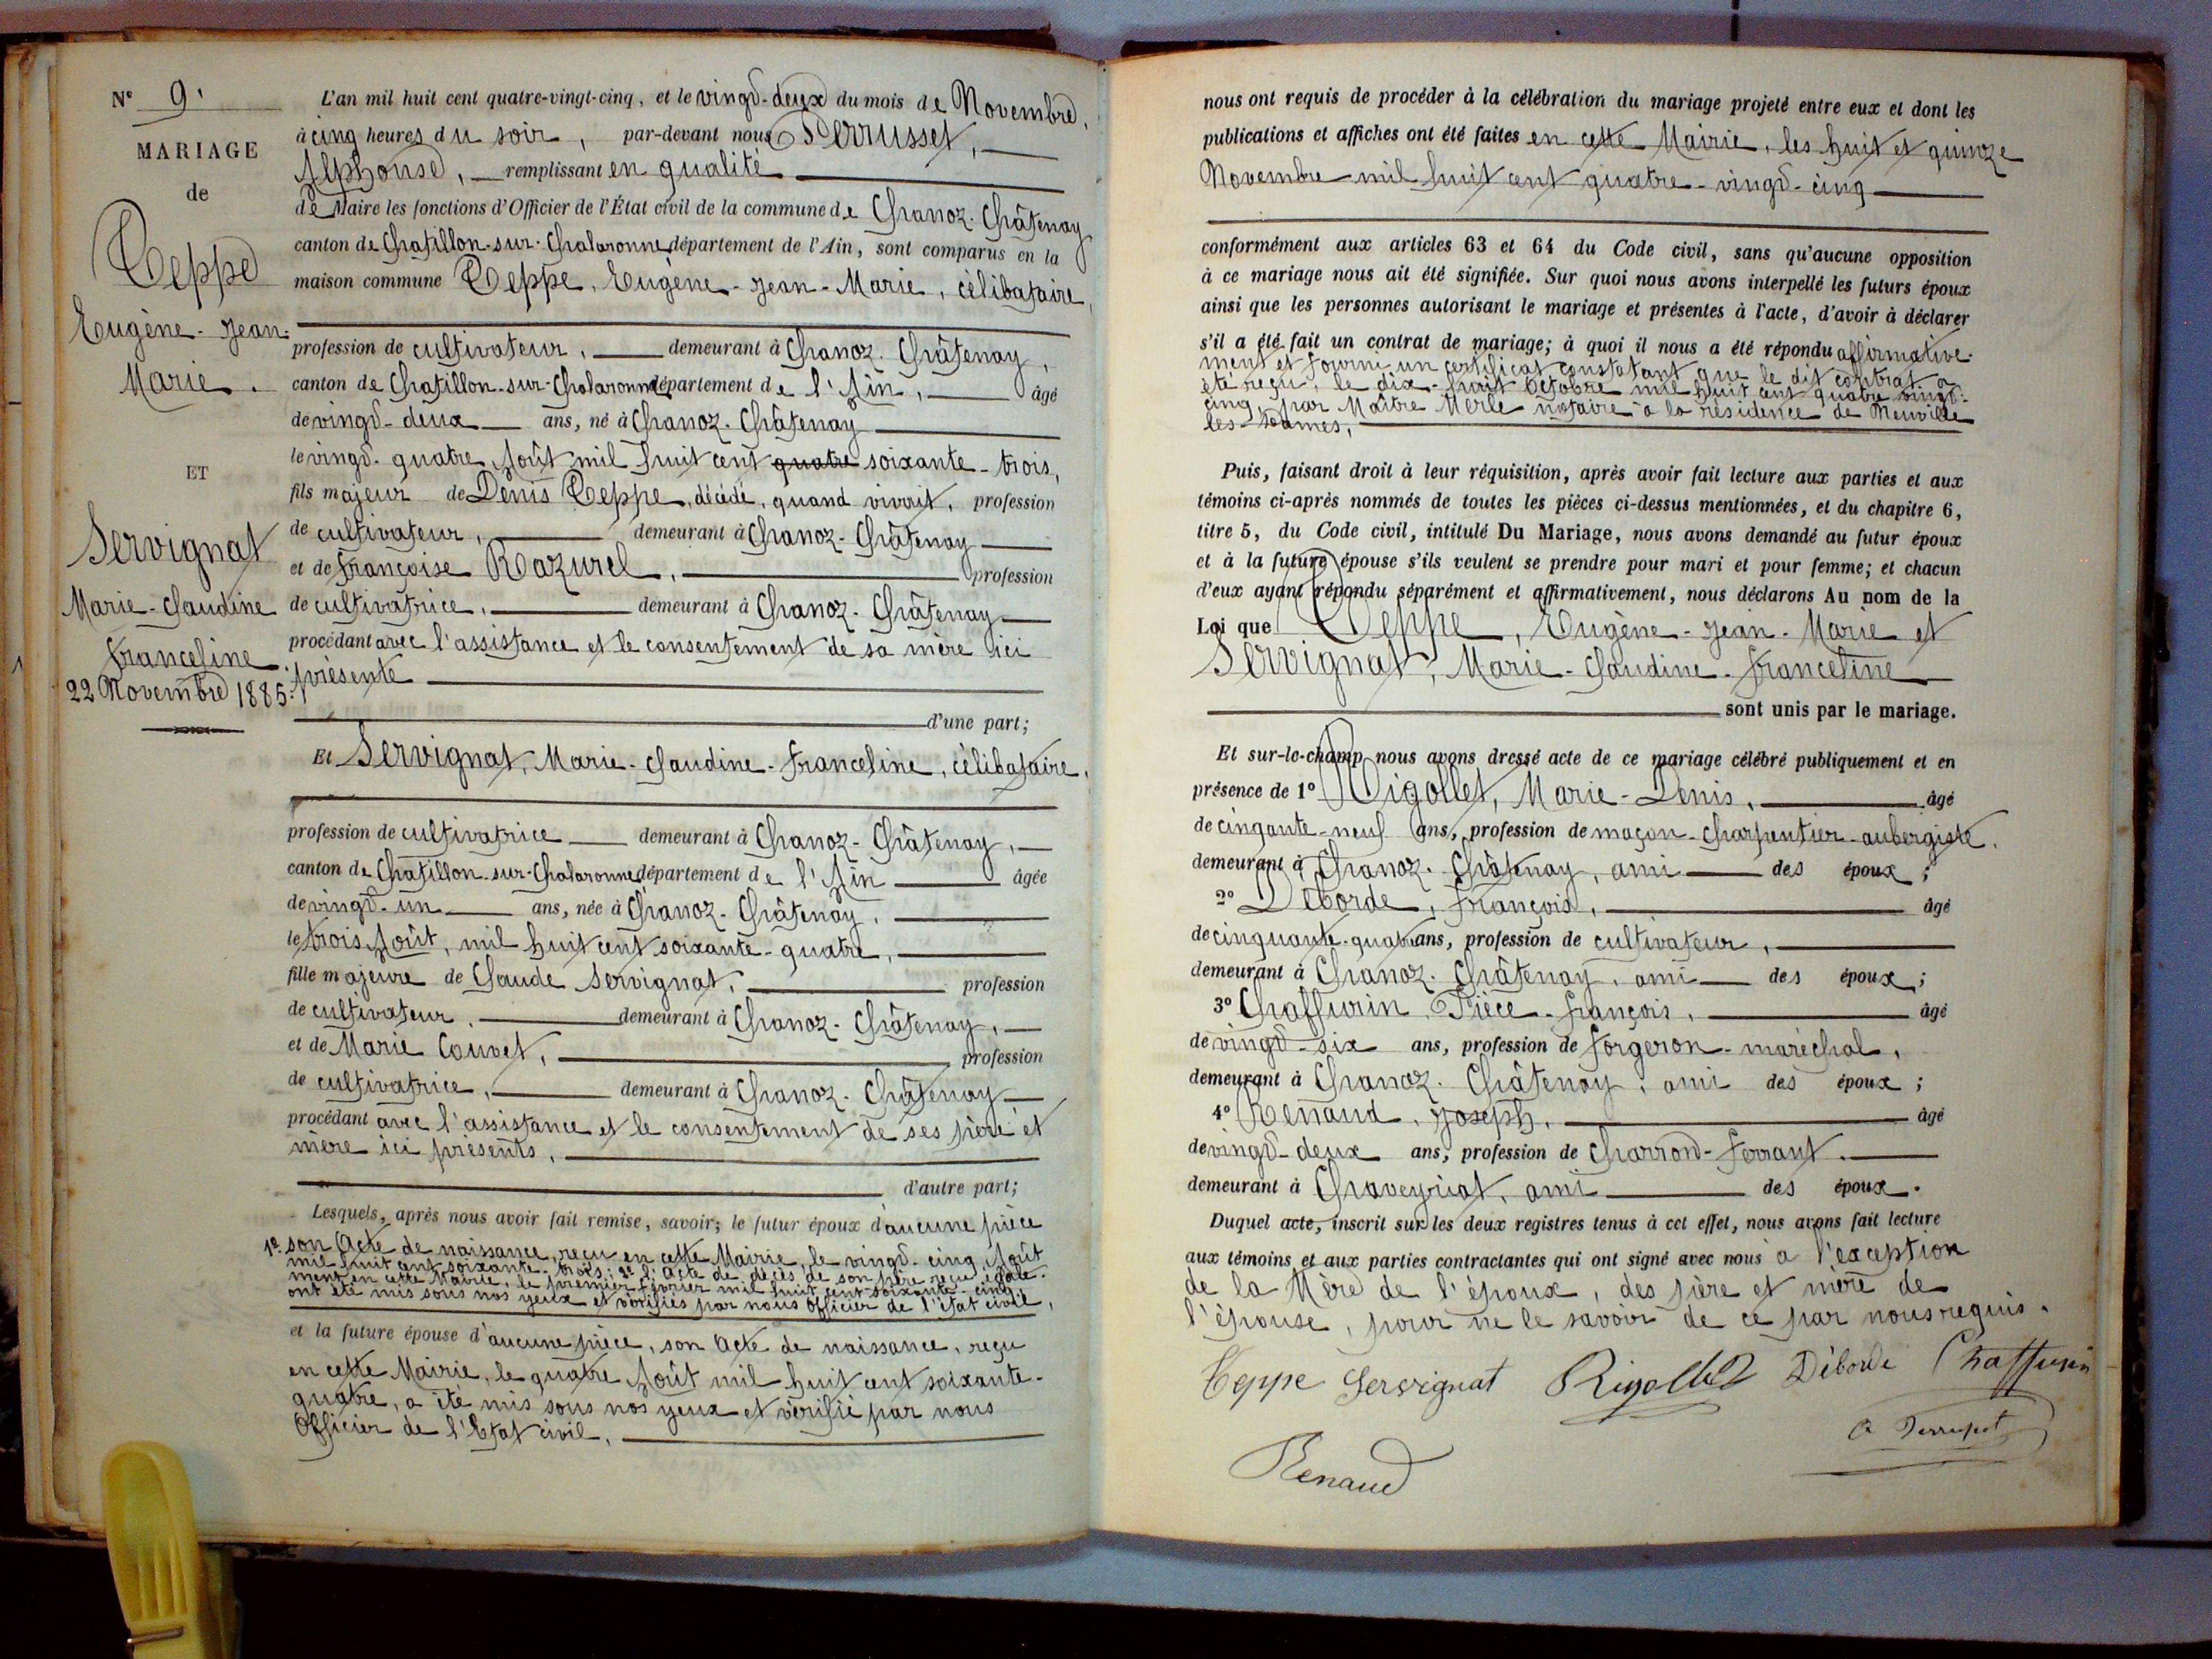 N° 9.
MARIAGE
de
Teppe
Eugène-Jean-
Marie.
ET
Servignat
Marie-Claudine
Franceline.
22 Novembre 1885.
L'an mil huit cent quatre-vingt-cinq, et le vingt-deux du mois de Novembre,
à cinq heures du soir, par-devant nous Perrusset,
Alphonse, remplissant en qualité
de Maire les fonctions d'Officier de l'État civil de la commune de Chanoz-Châtenay
canton de Chatillon-sur-Chalaronne département de l'Ain, sont comparus en la
maison commune Teppe, Eugène-Jean-Marie, célibataire,
profession de cultivateur, demeurant à Chanoz-Châtenay,
canton de Chatillon-sur-Chalaronne département de l'Ain, âgé
de vingt-deux ans, né à Chanoz-Châtenay
le vingt-quatre Août mil huit cent quatre soixante-trois,
fils majeur de Denis Teppe, décédé, quand vivait, profession
de cultivateur, demeurant à Chanoz-Châtenay
et de Françoise Razurel, profession
de cultivatrice, demeurant à Chanoz-Châtenay
procédant avec l'assistance et le consentement de sa mère ici
présente
d'une part;
Et Servignat, Marie-Claudine-Franceline, célibataire,
profession de cultivatrice demeurant à Chanoz-Châtenay,
canton de Chatillon-sur-Chalaronne département de l'Ain âgée
de vingt-un ans, née à Chanoz-Châtenay,
le trois Août, mil huit cent soixante-quatre,
fille majeure de Claude Servignat, profession
de cultivateur, demeurant à Chanoz-Châtenay,
et de Marie Couvet, profession
de cultivatrice, demeurant à Chanoz-Châtenay
procédant avec l'assistance et le consentement de ses père et
mère ici présents,
d'autre part;
Lesquels, après nous avoir fait remise, savoir; le futur époux d'aucune pièce
1° son Acte de naissance, reçu en cette Mairie, le vingt-cinq Août
mil huit cent soixante-trois; 2° l'Acte de décès de son père reçu égale-
ment en cette Mairie, le premier Février mil huit cent soixante-cinq,
ont été mis sous nos yeux et vérifiés par nous Officier de l'état civil,
et la future épouse d'aucune pièce, son Acte de naissance, reçu
en cette Mairie, le quatre Août mil huit cent soixante-
quatre, a été mis sous nos yeux et vérifié par nous
Officier de l'Etat civil,
nous ont requis de procéder à la célébration du mariage projeté entre eux et dont les
publications et affiches ont été faites en cette Mairie, les huit et quinze
Novembre mil huit cent quatre-vingt-cinq
conformément aux articles 63 et 64 du Code civil, sans qu'aucune opposition
à ce mariage nous ait été signifiée. Sur quoi nous avons interpellé les futurs époux
ainsi que les personnes autorisant le mariage et présentes à l'acte, d'avoir à déclarer
s'il a été fait un contrat de mariage; à quoi il nous a été répondu affirmative-
ment et fourni un certificat constatant que le dit contrat a
été reçu, le dix-huit Octobre mil huit cent quatre vingt-
cinq, par Maître Merle notaire à la résidence de Neuville
les-Dames,
Puis, faisant droit à leur réquisition, après avoir fait lecture aux parties et aux
témoins ci-après nommés de toutes les pièces ci-dessus mentionnées, et du chapitre 6,
titre 5, du Code civil, intitulé Du Mariage, nous avons demandé au futur époux
et à la future épouse s'ils veulent se prendre pour mari et pour femme; et chacun
d'eux ayant répondu séparément et affirmativement, nous déclarons Au nom de la
Loi que Teppe, Eugène-Jean-Marie et
Servignat, Marie-Claudine-Franceline
sont unis par le mariage.
Et sur-le-champ nous avons dressé acte de ce mariage célébré publiquement et en
présence de 1° Rigollet, Marie-Denis, âgé
de cinqante-neuf ans, profession de maçon-charpentier-aubergiste,
demeurant à Chanoz-Châtenay, ami des époux;
2° Déborde, François, âgé
de cinquante-quatre ans, profession de cultivateur,
demeurant à Chanoz-Châtenay, ami des époux;
3° Chaffurin, Pièce-François, âgé
de vingt-six ans, profession de forgeron-maréchal,
demeurant à Chanoz-Châtenay; ami des époux;
4° Renaud, Joseph, âgé
de vingt-deux ans, profession de Charron-Ferrant.
demeurant à Chaveyriat, ami des époux.
Duquel acte, inscrit sur les deux registres tenus à cet effet, nous avons fait lecture
aux témoins et aux parties contractantes qui ont signé avec nous à l'exception
de la Mère de l'époux, des père et mère de
l'épouse, pour ne le savoir de ce par nous requis.
Teppe Servignat Rigollet Déborde Chaffurin
A Perrusset
Renaud